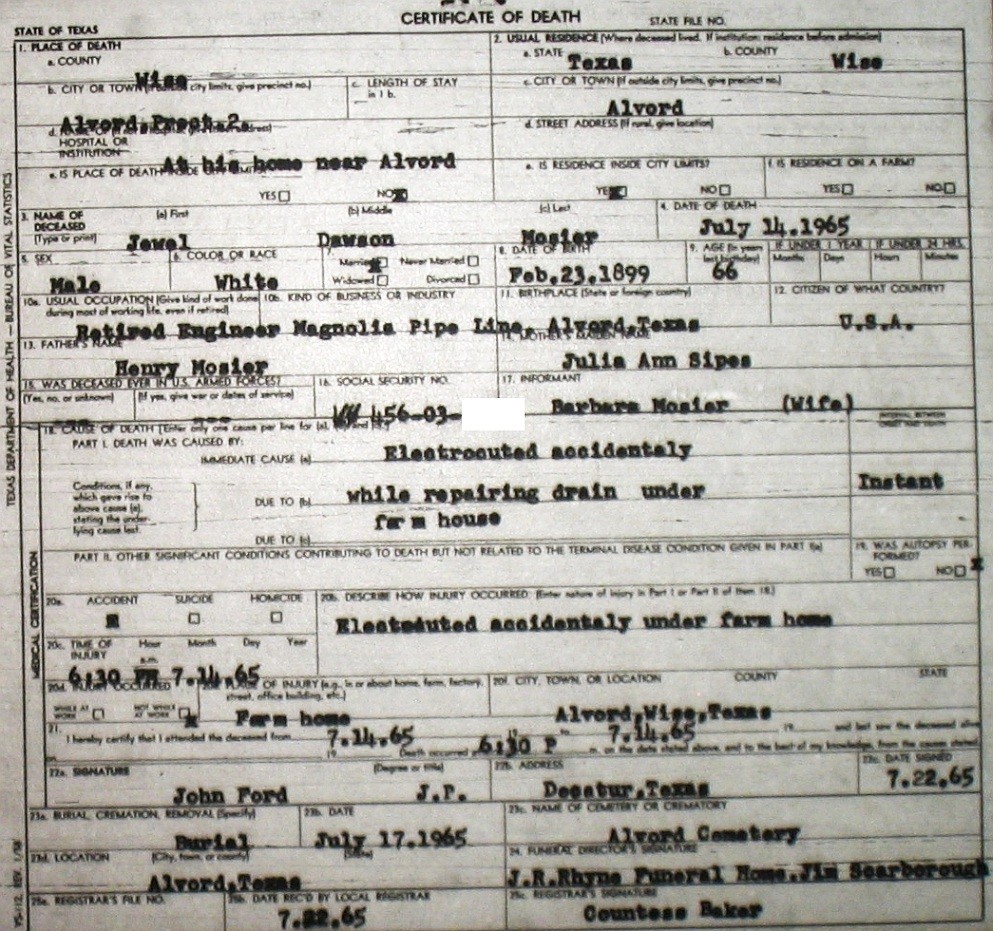 CERTIFICATE OF DEATH
STATE OF TEXAS
STATE FILE NO.
1. PLACE OF DEATH
a. COUNTY
Wise
2. USUAL RESIDENCE (Where deceased lived. If institution: residence before admission)
a. STATE Texas b. COUNTY Wise
b. CITY OR TOWN (If outside city limits, give precinct no.)
Alvord,Prect.2.
c. LENGTH OF STAY
in 1 b.
c. CITY OR TOWN (If outside city limits, give precinct no.)
Alvord
d. NAME OF
HOSPITAL OR
INSTITUTION
At his home near Alvord
d. STREET ADDRESS (If rural, give location)
e. IS PLACE OF DEATH INSIDE CITY LIMITS?
YES NO
e. IS RESIDENCE INSIDE CITY LIMITS?
YES NO
f. IS RESIDENCE ON A FARM?
YES NO
3. NAME OF
DECEASED
(Type or print)
(a) First (b) Middle (c) Last
Jewel Dawson Mosier
4. DATE OF DEATH
July 14.1965
5. SEX
Male
6. COLOR OR RACE
White
7.
Married Never Married
Widowed Divorced
8. DATE OF BIRTH
Feb.23.1899
9. AGE (In years
last birthday)
66
IF UNDER 1 YEAR IF UNDER 24 HRS.
Months Days Hours Minutes
10a. USUAL OCCUPATION (Give kind of work done
during most of working life, even if retired)
10b. KIND OF BUSINESS OR INDUSTRY
11. BIRTHPLACE (State or foreign country)
12. CITIZEN OF WHAT COUNTRY?
Retired Engineer Magnolia Pipe Line, Alvord,Texas U.S.A.
13. FATHER'S NAME
Henry Mosier
14. MOTHER'S MAIDEN NAME
Julia Ann Sipes
15. WAS DECEASED EVER IN U.S. ARMED FORCES?
(Yes, no, or unknown) (If yes, give war or dates of service)
16. SOCIAL SECURITY NO.
456-03-
17. INFORMANT
Barbara Mosier (Wife)
18. CAUSE OF DEATH [Enter only one cause per line for (a), (b), and (c).]
INTERVAL BETWEEN
ONSET AND DEATH
PART I. DEATH WAS CAUSED BY:
IMMEDIATE CAUSE (a) Electrocuted accidentaly
Conditions, if any,
which gave rise to
above cause (a),
stating the under-
lying cause last.
DUE TO (b) while repairing drain under
farm house
DUE TO (c)
Instant
PART II. OTHER SIGNIFICANT CONDITIONS CONTRIBUTING TO DEATH BUT NOT RELATED TO THE TERMINAL DISEASE CONDITION GIVEN IN PART I(a)
19. WAS AUTOPSY PER-
FORMED?
YES NO X
20a. ACCIDENT SUICIDE HOMICIDE
20b. DESCRIBE HOW INJURY OCCURRED. (Enter nature of injury in Part I or Part II of Item 18.)
Electrduted accidentaly under farm home
20c. TIME OF
INJURY
Hour Month Day Year
a.m.
6:30 PM 7.14.65
20d. INJURY OCCURRED
WHILE AT
WORK
NOT WHILE
AT WORK
20e. PLACE OF INJURY (e.g., in or about home, farm, factory,
street, office building, etc.)
Farm home
20f. CITY, TOWN, OR LOCATION COUNTY STATE
Alvord,Wise,Texas
21.
I hereby certify that I attended the deceased from 7.14.65 19 to 7.14.65 19 and last saw the deceased alive
on 19 Death occurred 6:30 P m. on the date stated above, and to the best of my knowledge, from the causes stated.
22a. SIGNATURE (Degree or title)
John Ford J.P.
22b. ADDRESS
Decatur,Texas
22c. DATE SIGNED
7.22.65
23a. BURIAL, CREMATION, REMOVAL (Specify)
Burial
23b. DATE
July 17.1965
23c. NAME OF CEMETERY OR CREMATORY
Alvord Cemetery
23d. LOCATION (City, town, or county) (State)
Alvord,Texas
24. FUNERAL DIRECTOR'S SIGNATURE
J.R.Rhyne Funeral Home.Jim Scarborough
25a. REGISTRAR'S FILE NO.
25b. DATE REC'D BY LOCAL REGISTRAR
7.22.65
25c. REGISTRAR'S SIGNATURE
Countess Baker
TEXAS DEPARTMENT OF HEALTH — BUREAU OF VITAL STATISTICS
MEDICAL CERTIFICATION
VS-112, REV. 1/58